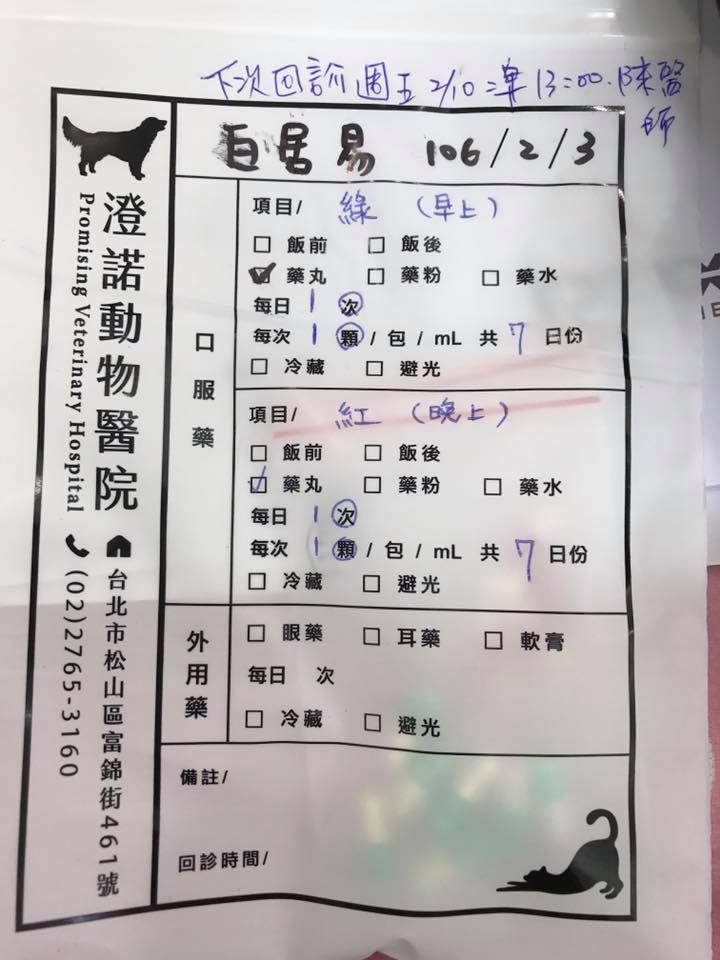 下次回診週五 2/10 準 13:00. 陳醫師
白居易 106/2/3
澄諾動物醫院
Promising Veterinary Hospital
台北市松山區富錦街461號
(02)2765-3160
口服藥
項目/ 綠 (早上)
飯前 飯後
藥丸 藥粉 藥水
每日 1 次
每次 1 顆 / 包 / mL 共 7 日份
冷藏 避光
項目/ 紅 (晚上)
飯前 飯後
藥丸 藥粉 藥水
每日 1 次
每次 1 顆 / 包 / mL 共 7 日份
冷藏 避光
外用藥
眼藥 耳藥 軟膏
每日 次
冷藏 避光
備註/
回診時間/